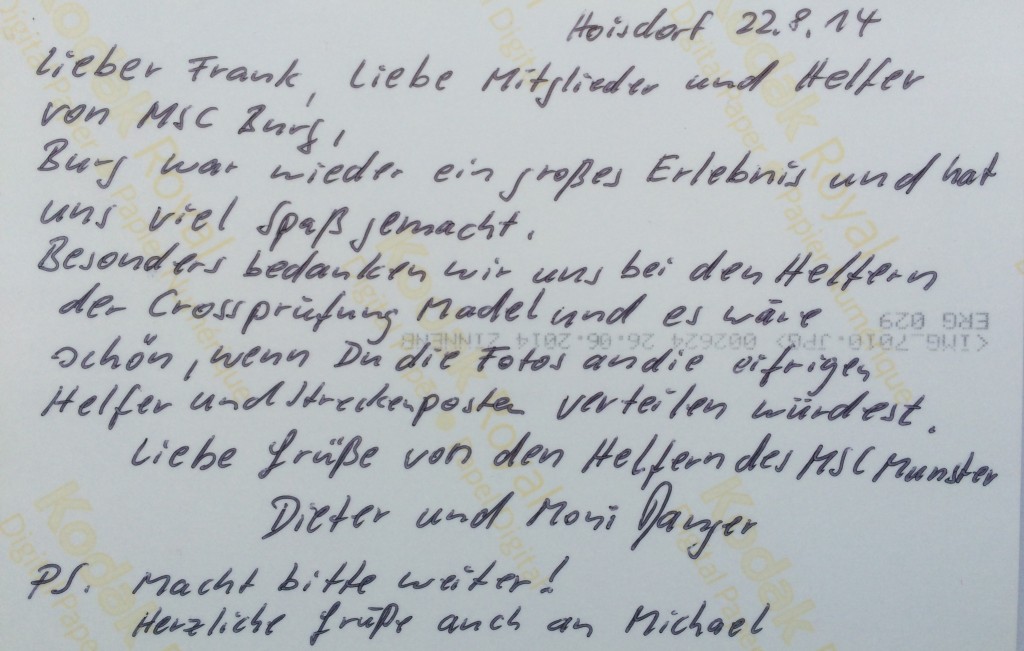 Hoisdorf 22.8.14
Lieber Frank, Liebe Mitglieder und Helfer
von MSC Burg,
Burg war wieder ein großes Erlebnis und hat
uns viel Spaß gemacht.
Besonders bedanken wir uns bei den Helfern
der Crossprüfung Madel und es wäre
schön, wenn Du die Fotos an die eifrigen
Helfer und Streckenposten verteilen würdest.
Liebe Grüße von den Helfern des MSC Munster
Dieter und Moni
PS. Macht bitte weiter!
Herzliche Grüße auch an Michael
<IMG_7010.JPG> 002624 26.06.2014 ZINNENB
ERG 029
Kodak Royal
Digital Paper Papier Numérique